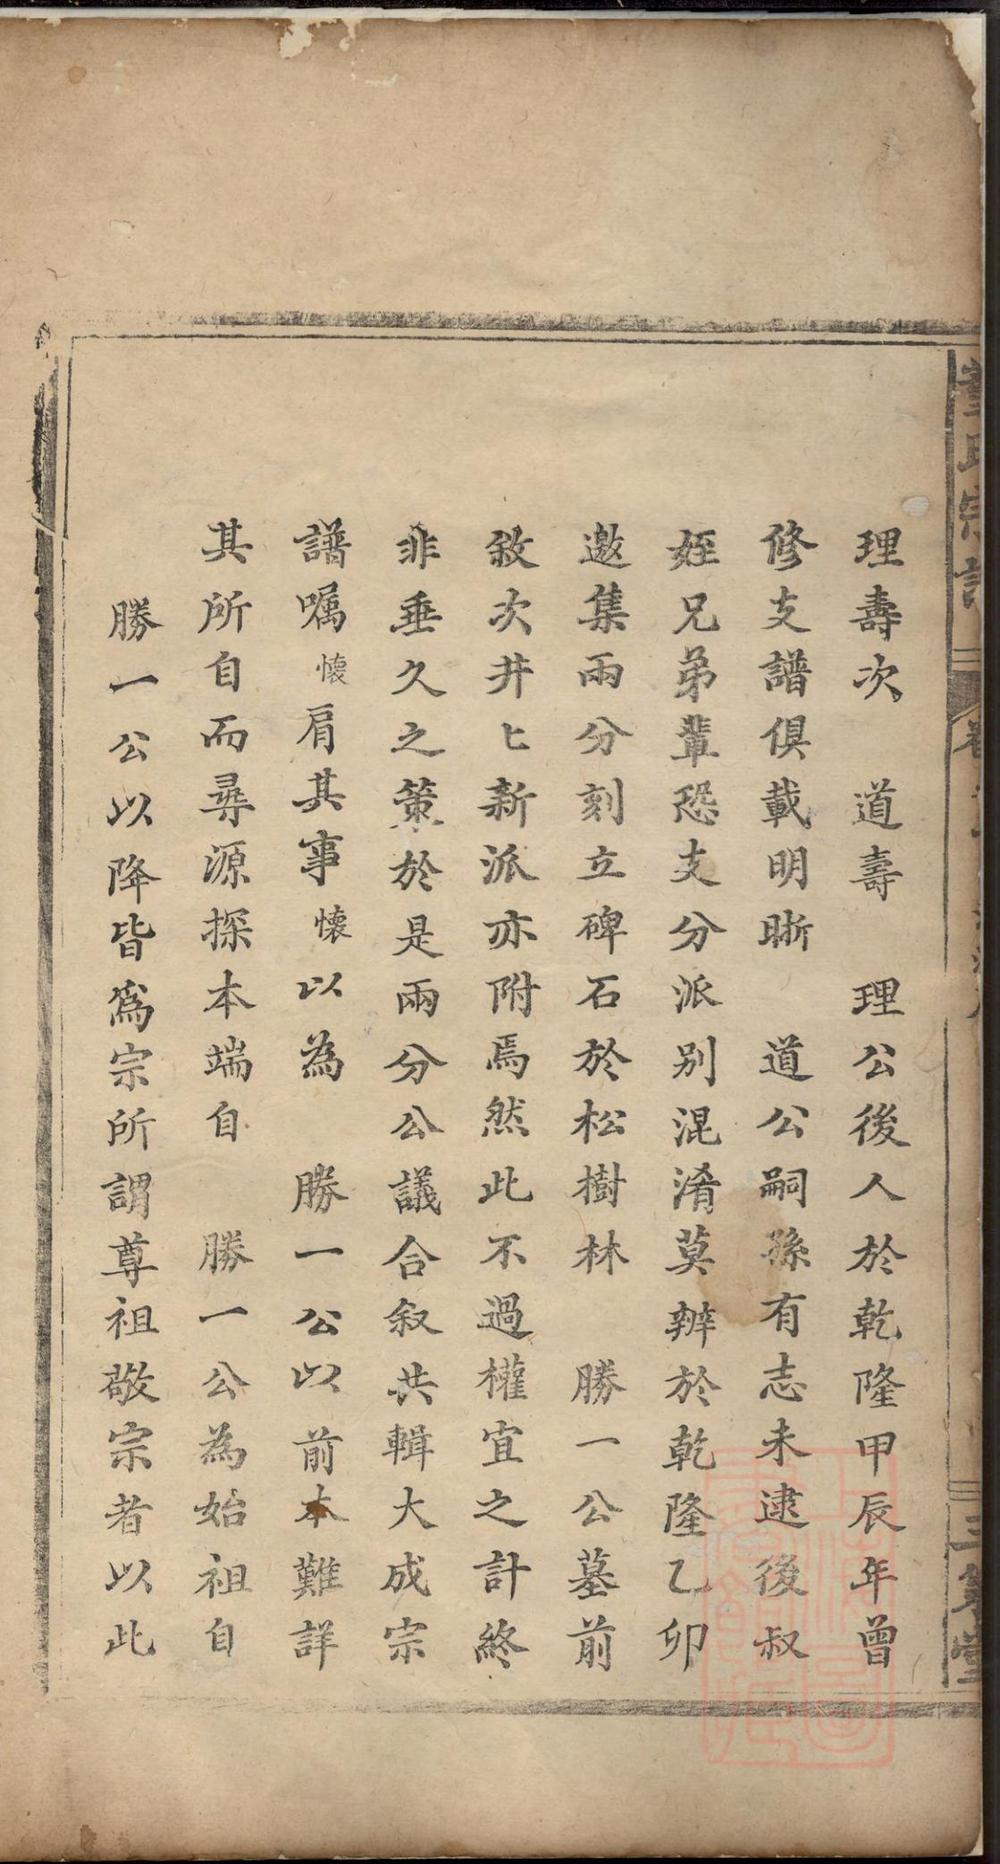 理壽次　道壽　理公後人於乾隆甲辰年曾
修支譜俱載明晰　道公嗣孫有志未逮後叔
姪兄弟輩恐支分派别混淆莫辨於乾隆乙卯
邀集兩分刻立碑石於松樹林　勝一公墓前
敘次井匕新派亦附焉然此不過權宜之計終
非垂久之策於是兩分公議合叙共輯大成宗
譜嘱懐肩其事懐以為　勝一公以前本難詳
其所自而尋源探本端自　勝一公為始祖自
勝一公以降皆爲宗所謂尊祖敬宗者以此
氏宗譜